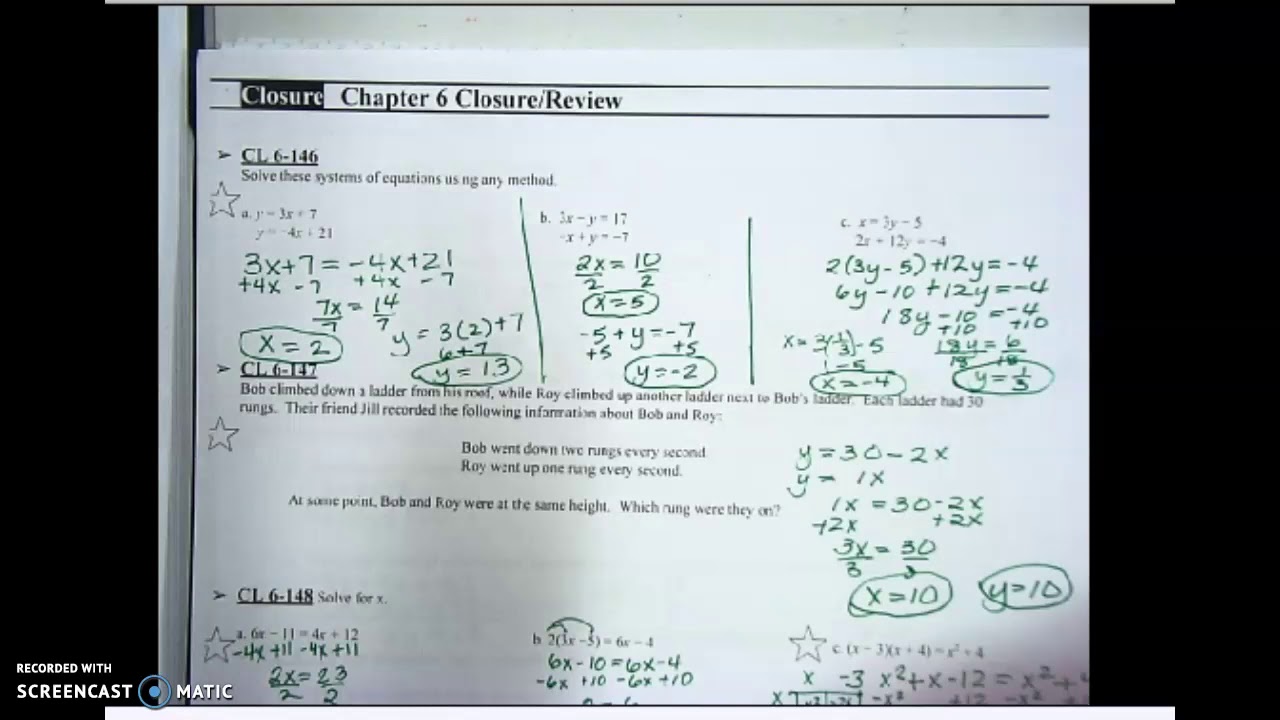 Closure Chapter 6 Closure/Review
➢ CL 6-146
Solve these systems of equations us ng any method.
a. y = 3x + 7
y = -4x + 21
3x+7 = -4x+21
+4x -7 +4x -7
7x = 14
7 7
x = 2
y = 3(2)+7
6+7
y = 13
b. 3x - y = 17
-x + y = -7
2x = 10
2 2
x = 5
-5 + y = -7
+5 +5
y = -2
c. x = 3y - 5
2x + 12y = -4
2(3y-5)+12y=-4
6y-10+12y=-4
18y-10 = -4
+10 +10
18y = 6
18 18
y = 1/3
x = 3(1/3)-5
1-5
x = -4
➢ CL 6-147
Bob climbed down a ladder from his roof, while Roy climbed up another ladder next to Bob's ladder. Each ladder had 30
rungs. Their friend Jill recorded the following information about Bob and Roy:
Bob went down two rungs every second
Roy went up one rung every second.
At some point, Bob and Roy were at the same height. Which rung were they on?
y = 30 - 2x
y = 1x
1x = 30-2x
+2x +2x
3x = 30
3 3
x = 10 y = 10
➢ CL 6-148 Solve for x.
a. 6x - 11 = 4x + 12
-4x +11 -4x +11
2x = 23
2 2
b. 2(3x - 5) = 6x - 4
6x - 10 = 6x - 4
-6x +10 -6x +10
c. (x - 3)(x + 4) = x² + 4
x -3 x²+x-12 = x²+4
RECORDED WITH
SCREENCAST MATIC